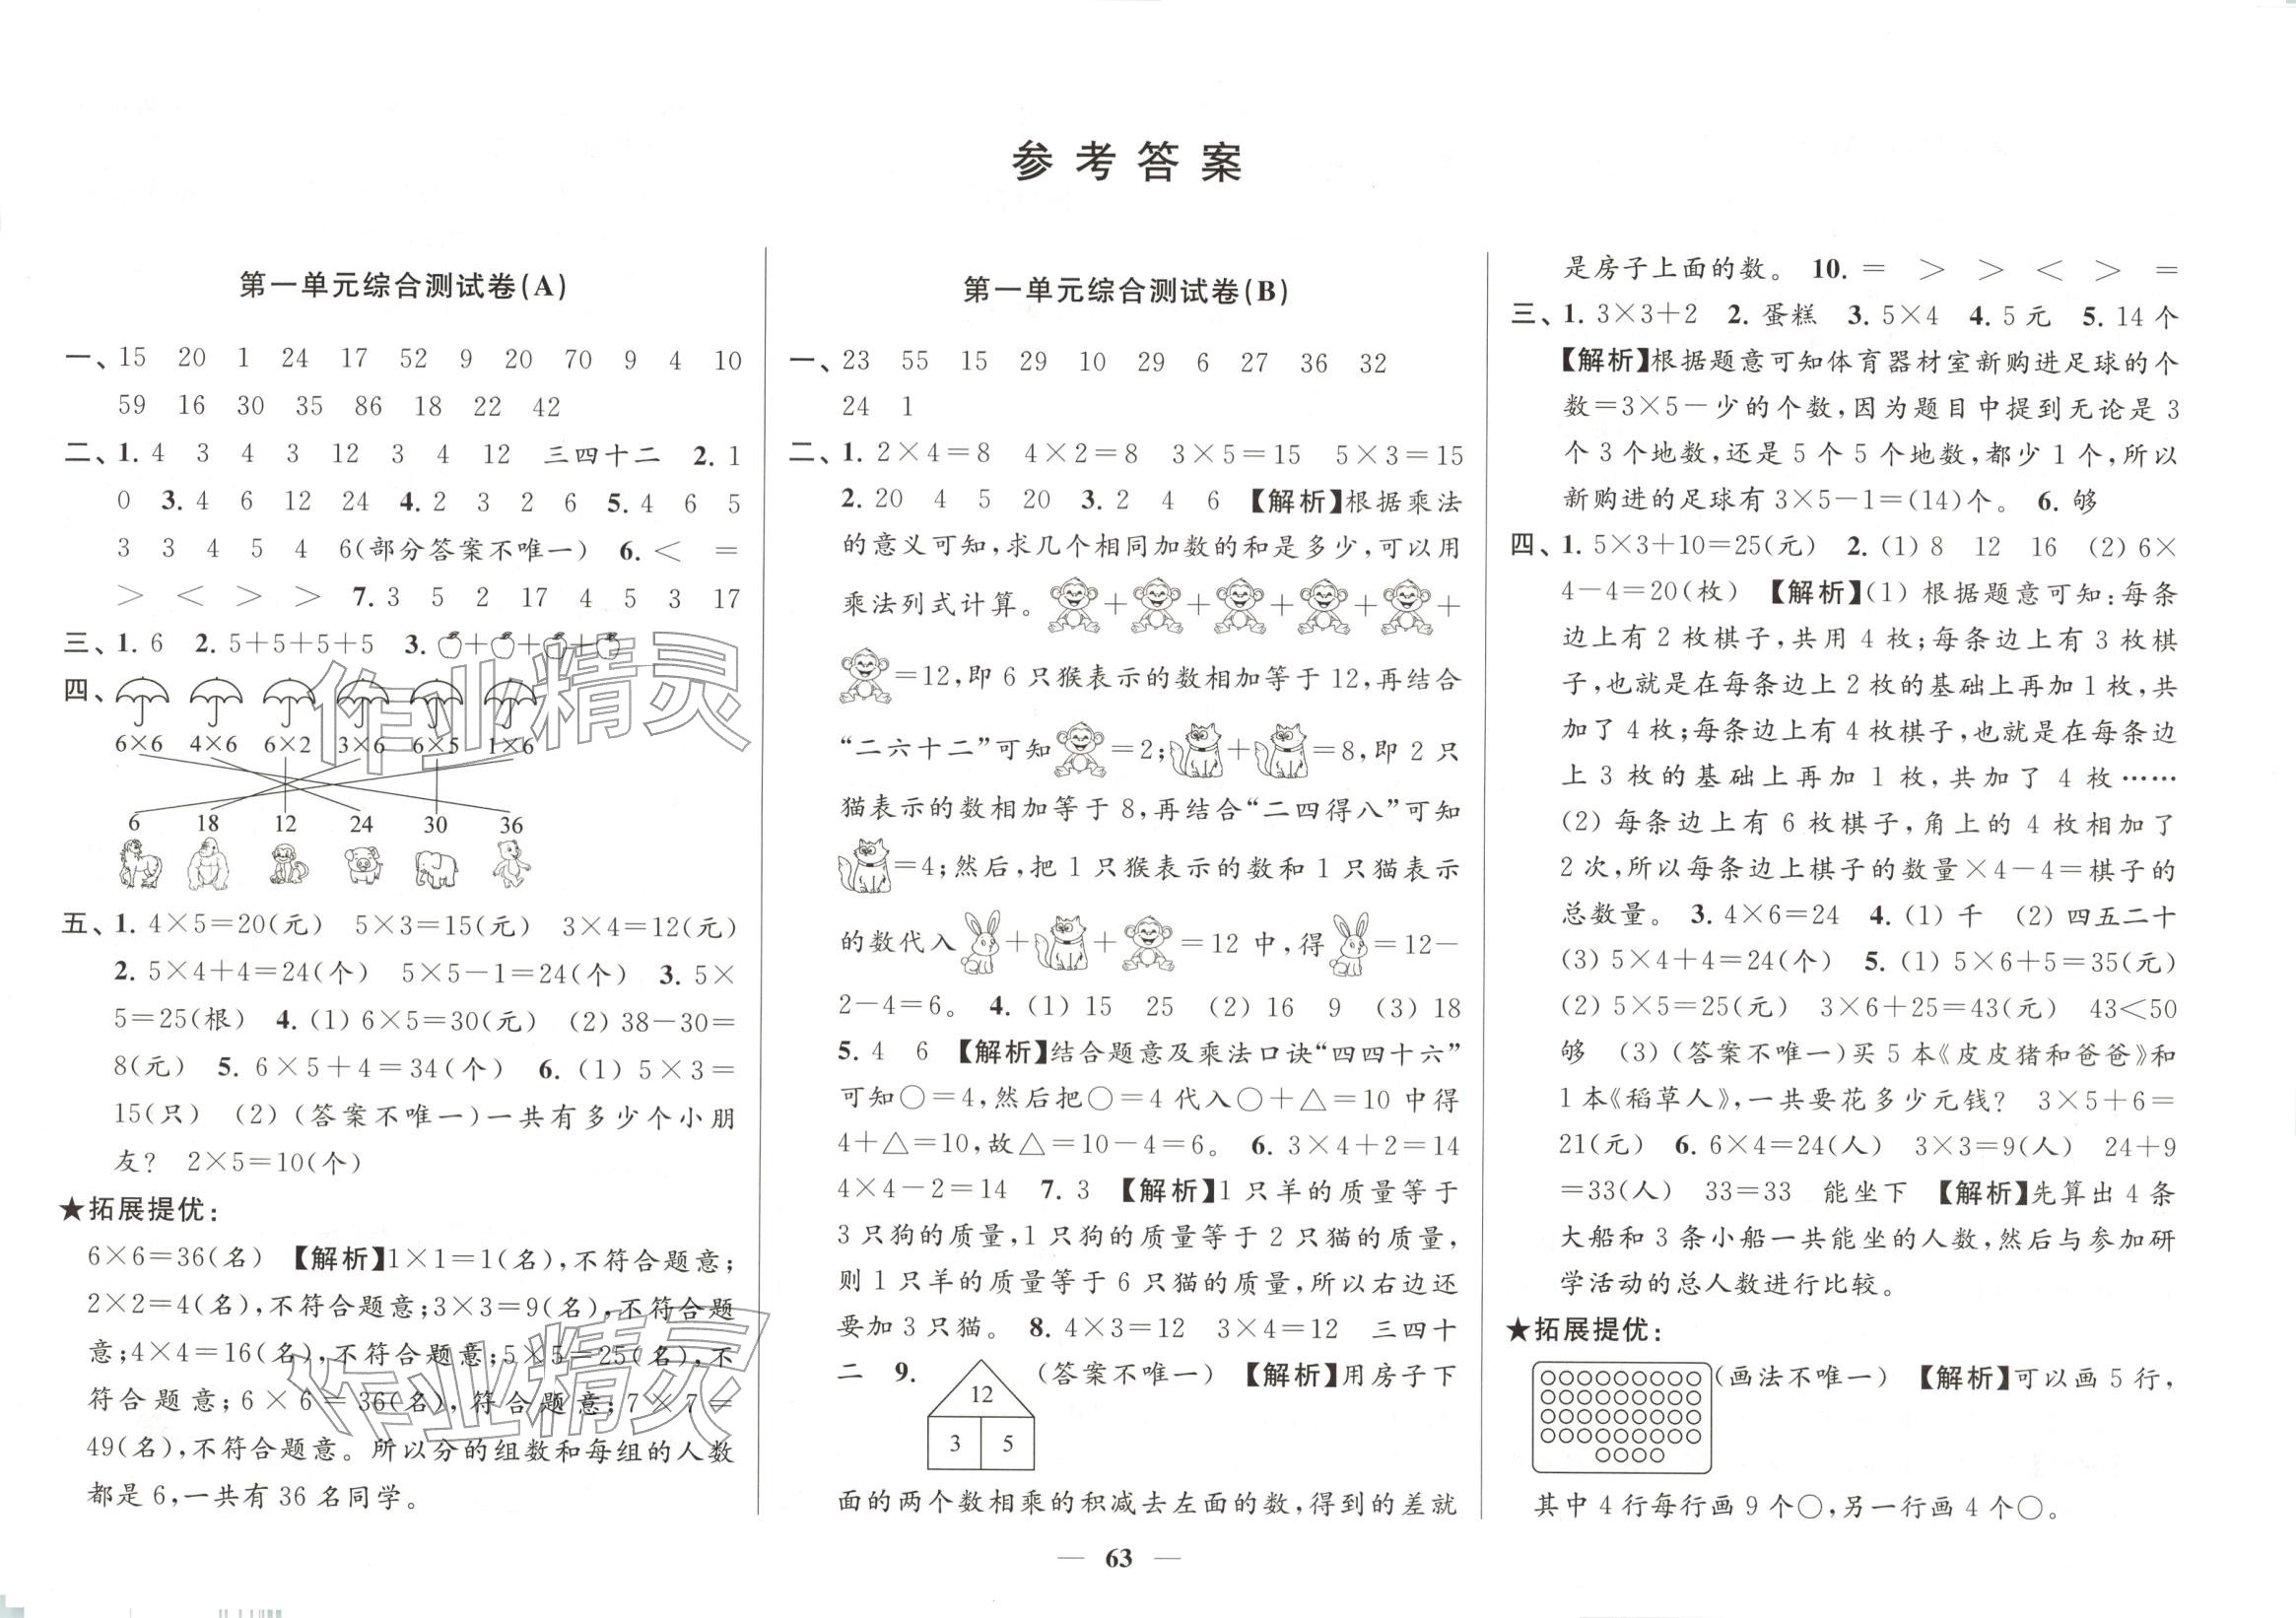 参考答案
第一单元综合测试卷(A)
一、15 20 1 24 17 52 9 20 70 9 4 10
59 16 30 35 86 18 22 42
二、1. 4 3 4 3 12 3 4 12 三四十二 2. 1
0 3. 4 6 12 24 4. 2 3 2 6 5. 4 6 5
3 3 4 5 4 6(部分答案不唯一) 6. < =
> < > > 7. 3 5 2 17 4 5 3 17
三、1. 6 2. 5+5+5+5 3. + + +
四、
6×6 4×6 6×2 3×6 6×5 1×6
6 18 12 24 30 36
五、1. 4×5=20(元) 5×3=15(元) 3×4=12(元)
2. 5×4+4=24(个) 5×5-1=24(个) 3. 5×
5=25(根) 4. (1) 6×5=30(元) (2) 38-30=
8(元) 5. 6×5+4=34(个) 6. (1) 5×3=
15(只) (2) (答案不唯一)一共有多少个小朋
友? 2×5=10(个)
★拓展提优:
6×6=36(名) 【解析】1×1=1(名),不符合题意;
2×2=4(名),不符合题意;3×3=9(名),不符合题
意;4×4=16(名),不符合题意;5×5=25(名),不
符合题意;6×6=36(名),符合题意;7×7=
49(名),不符合题意。所以分的组数和每组的人数
都是6,一共有36名同学。
第一单元综合测试卷(B)
一、23 55 15 29 10 29 6 27 36 32
24 1
二、1. 2×4=8 4×2=8 3×5=15 5×3=15
2. 20 4 5 20 3. 2 4 6 【解析】根据乘法
的意义可知,求几个相同加数的和是多少,可以用
乘法列式计算。 + + + + +
=12,即6只猴表示的数相加等于12,再结合
“二六十二”可知 =2; + =8,即2只
猫表示的数相加等于8,再结合“二四得八”可知
=4;然后,把1只猴表示的数和1只猫表示
的数代入 + + =12中,得 =12-
2-4=6。 4. (1) 15 25 (2) 16 9 (3) 18
5. 4 6 【解析】结合题意及乘法口诀“四四十六”
可知○=4,然后把○=4代入○+△=10中得
4+△=10,故△=10-4=6。 6. 3×4+2=14
4×4-2=14 7. 3 【解析】1只羊的质量等于
3只狗的质量,1只狗的质量等于2只猫的质量,
则1只羊的质量等于6只猫的质量,所以右边还
要加3只猫。 8. 4×3=12 3×4=12 三四十
二 9. (答案不唯一) 【解析】用房子下
12
3 5
面的两个数相乘的积减去左面的数,得到的差就
是房子上面的数。 10. = > > < > =
三、1. 3×3+2 2. 蛋糕 3. 5×4 4. 5元 5. 14个
【解析】根据题意可知体育器材室新购进足球的个
数=3×5-少的个数,因为题目中提到无论是3
个3个地数,还是5个5个地数,都少1个,所以
新购进的足球有3×5-1=(14)个。 6. 够
四、1. 5×3+10=25(元) 2. (1) 8 12 16 (2) 6×
4-4=20(枚) 【解析】(1) 根据题意可知:每条
边上有2枚棋子,共用4枚;每条边上有3枚棋
子,也就是在每条边上2枚的基础上再加1枚,共
加了4枚;每条边上有4枚棋子,也就是在每条边
上3枚的基础上再加1枚,共加了4枚……
(2) 每条边上有6枚棋子,角上的4枚相加了
2次,所以每条边上棋子的数量×4-4=棋子的
总数量。 3. 4×6=24 4. (1) 千 (2) 四五二十
(3) 5×4+4=24(个) 5. (1) 5×6+5=35(元)
(2) 5×5=25(元) 3×6+25=43(元) 43<50
够 (3) (答案不唯一)买5本《皮皮猪和爸爸》和
1本《稻草人》,一共要花多少元钱? 3×5+6=
21(元) 6. 6×4=24(人) 3×3=9(人) 24+9
=33(人) 33=33 能坐下 【解析】先算出4条
大船和3条小船一共能坐的人数,然后与参加研
学活动的总人数进行比较。
★拓展提优:
(画法不唯一) 【解析】可以画5行,
其中4行每行画9个○,另一行画4个○。
— 63 —
作业精灵
作业精灵